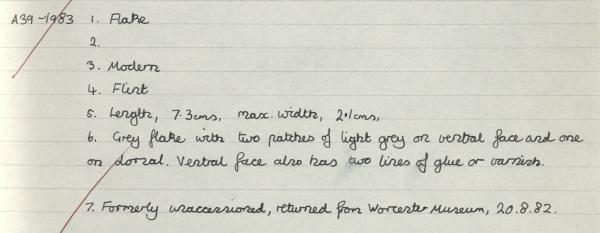 A39-1983 1. Flake
2.
3. Modern
4. Flint
5. Length, 7.3cms, max. width, 2.1cms,
6. Grey flake with two patches of light grey on ventral face and one
on dorsal. Ventral face also has two lines of glue or varnish.
7. Formerly unaccessioned, returned from Worcester Museum, 20.8.82.